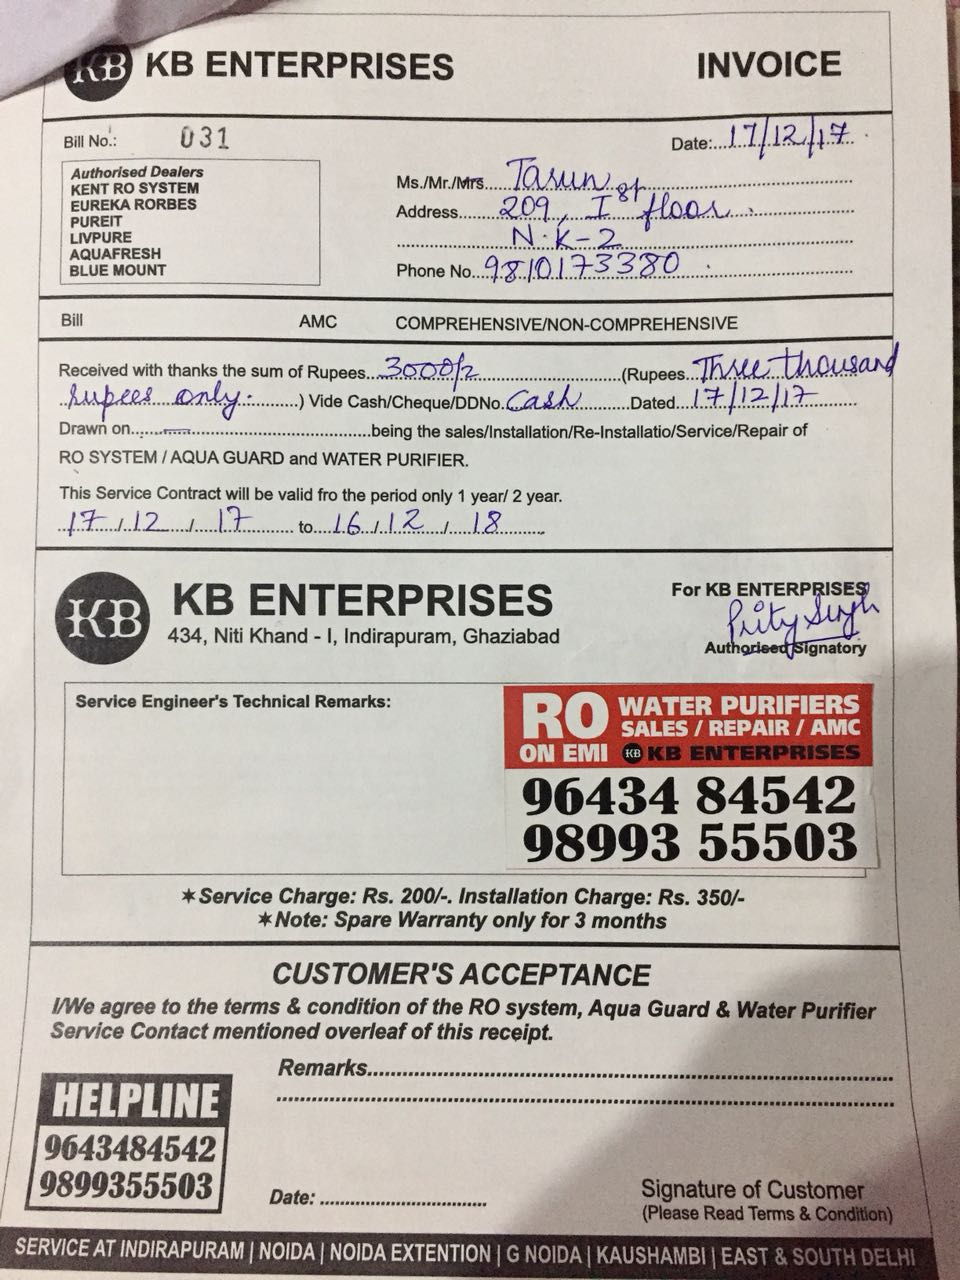 KB KB ENTERPRISES INVOICE
Bill No.: 031 Date:...17/12/17
Authorised Dealers
KENT RO SYSTEM
EUREKA RORBES
PUREIT
LIVPURE
AQUAFRESH
BLUE MOUNT
Ms./Mr./Mrs.... Tarun
Address..... 209, Ist floor
N·K-2
Phone No... 9810173380
Bill AMC COMPREHENSIVE/NON-COMPREHENSIVE
Received with thanks the sum of Rupees...3000/-...(Rupees...Three thousand
rupees only.......) Vide Cash/Cheque/DDNo. Cash.......Dated...17/12/17
Drawn on.....—.....being the sales/Installation/Re-Installatio/Service/Repair of
RO SYSTEM / AQUA GUARD and WATER PURIFIER.
This Service Contract will be valid fro the period only 1 year/ 2 year.
17 / 12 / 17 to 16 / 12 / 18
KB KB ENTERPRISES
434, Niti Khand - I, Indirapuram, Ghaziabad
For KB ENTERPRISES
Prity Singh
Authorised Signatory
Service Engineer's Technical Remarks:
RO WATER PURIFIERS
SALES / REPAIR / AMC
ON EMI KB KB ENTERPRISES
96434 84542
98993 55503
✶Service Charge: Rs. 200/-. Installation Charge: Rs. 350/-
✶Note: Spare Warranty only for 3 months
CUSTOMER'S ACCEPTANCE
I/We agree to the terms & condition of the RO system, Aqua Guard & Water Purifier
Service Contact mentioned overleaf of this receipt.
Remarks.....
HELPLINE
9643484542
9899355503
Date: .....
Signature of Customer
(Please Read Terms & Condition)
SERVICE AT INDIRAPURAM | NOIDA | NOIDA EXTENTION | G NOIDA | KAUSHAMBI | EAST & SOUTH DELHI